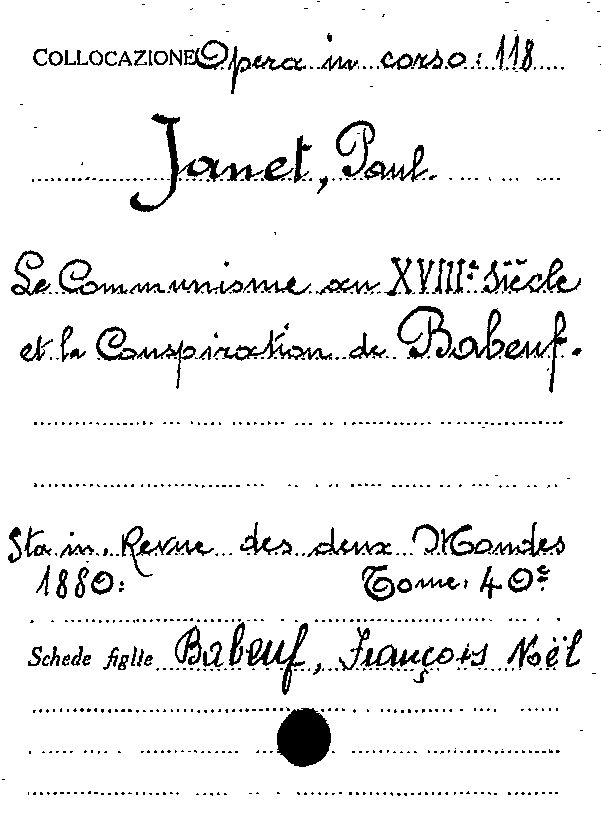 COLLOCAZIONE Opera in corso: 118
Janet, Paul.
Le Communisme au XVIIIe Siècle
et la Conspiration de Babeuf.
Sta in. Revue des deux Mondes
1880: Tome. 40e
Schede figlie Babeuf, François Noël